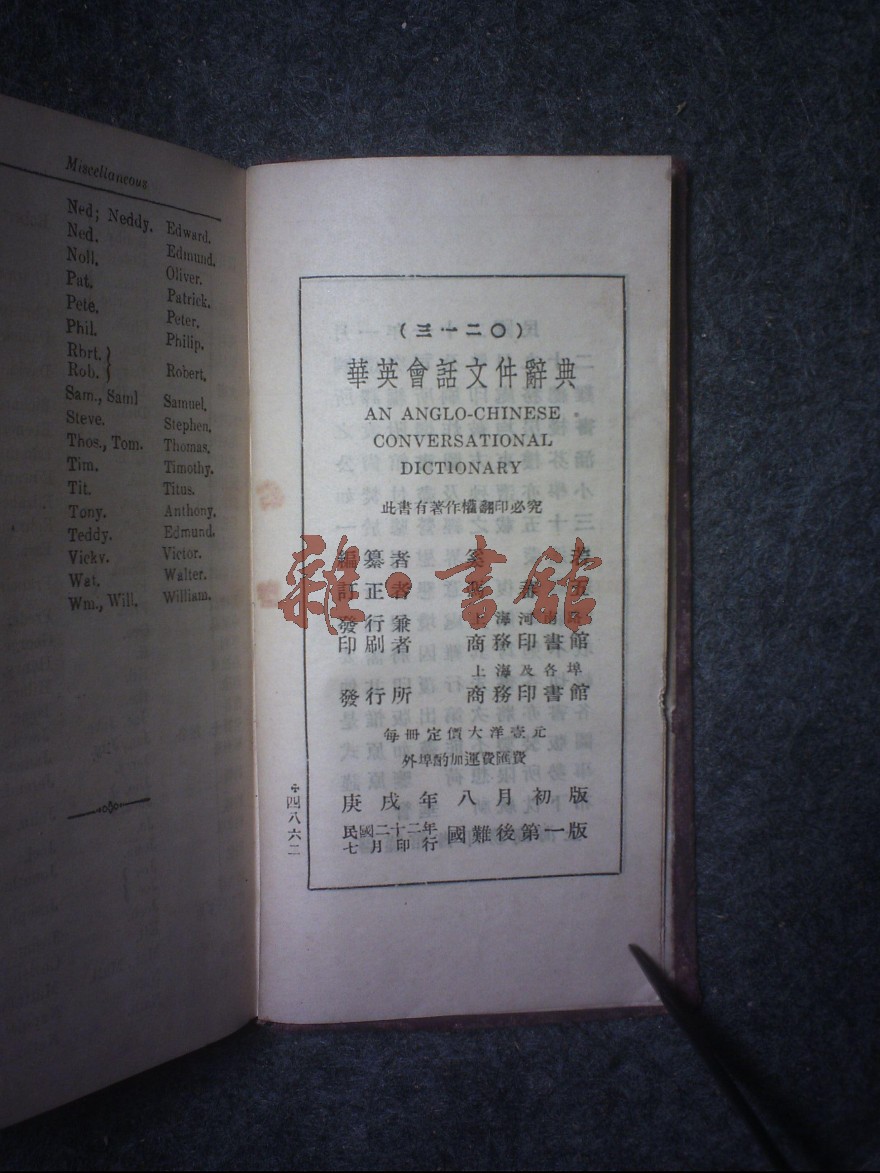 Miscellaneous
Ned; Neddy. Edward.
Ned. Edmund.
Noll. Oliver.
Pat. Patrick.
Pete. Peter.
Phil. Philip.
Rbrt. }
Rob. { Robert.
Sam., Saml Samuel.
Steve. Stephen.
Thos., Tom. Thomas.
Tim. Timothy.
Tit. Titus.
Tony. Anthony.
Teddy. Edmund.
Vicky. Victor.
Wat. Walter.
Wm., Will. William.
(三一二〇)
華英會話文件辭典
AN ANGLO-CHINESE
CONVERSATIONAL
DICTIONARY
此書有著作權翻印必究
編纂者
訂正者
發行兼印刷者 上海河南路 商務印書館
發行所 上海及各埠 商務印書館
每冊定價大洋壹元
外埠酌加運費匯費
庚戌年八月初版
民國二十二年七月印行 國難後第一版
四八六二
雜·書館